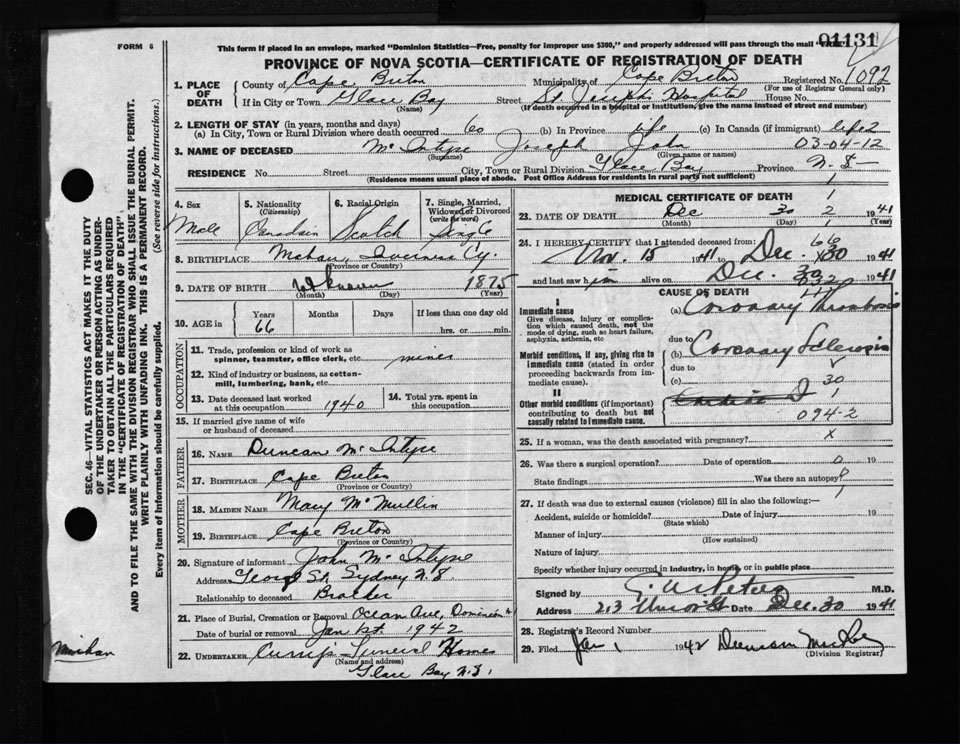 FORM 6
This form if placed in an envelope, marked "Dominion Statistics—Free, penalty for improper use $300," and properly addressed will pass through the mail "Free."
01131
PROVINCE OF NOVA SCOTIA—CERTIFICATE OF REGISTRATION OF DEATH
1. PLACE OF DEATH
County of Cape Breton Municipality of Cape Breton Registered No. 1092
(For use of Registrar General only)
If in City or Town Glace Bay Street St. Joseph's Hospital House No.
(Name) (If death occurred in a hospital or institution, give the name instead of street and number)
2. LENGTH OF STAY (in years, months and days)
(a) In City, Town or Rural Division where death occurred 60 (b) In Province life (c) In Canada (if immigrant) life 2
3. NAME OF DECEASED Mc Intyre Joseph John 03-04-12
(Surname) (Given name or names)
RESIDENCE No. Street City, Town or Rural Division Glace Bay Province N. S
(Residence means usual place of abode. Post Office Address for residents in rural parts not sufficient)
4. Sex
Male
5. Nationality
(Citizenship)
Canadian
6. Racial Origin
Scotch
7. Single, Married, Widowed or Divorced
(write the word)
Single
8. BIRTHPLACE Mabou, Inverness Cy.
(Province or Country)
9. DATE OF BIRTH unknown 1875
(Month) (Day) (Year)
10. AGE in
Years Months Days If less than one day old
66 hrs. or min.
OCCUPATION
11. Trade, profession or kind of work as spinner, teamster, office clerk, etc. miner
12. Kind of industry or business, as cotton-mill, lumbering, bank, etc.
13. Date deceased last worked at this occupation 1940
14. Total yrs. spent in this occupation
15. If married give name of wife or husband of deceased
FATHER
16. NAME Duncan Mc Intyre
17. BIRTHPLACE Cape Breton
(Province or Country)
MOTHER
18. MAIDEN NAME Mary Mc Mullin
19. BIRTHPLACE Cape Breton
(Province or Country)
20. Signature of informant John Mc Intyre
Address George St. Sydney N.S
Relationship to deceased Brother
21. Place of Burial, Cremation or Removal Ocean Ave, Dominion
Date of burial or removal Jan 1st. 1942
22. UNDERTAKER Funeral Homes
(Name and address)
Glace Bay N.S.
MEDICAL CERTIFICATE OF DEATH
1
23. DATE OF DEATH Dec 30 2 1941
(Month) (Day) (Year)
24. I HEREBY CERTIFY that I attended deceased from:
66
Nov. 15 1941 to Dec. 30 1941
and last saw him alive on Dec. 30 1941
CAUSE OF DEATH
I
Immediate cause
Give disease, injury or complication which caused death, not the mode of dying, such as heart failure, asphyxia, asthenia, etc
(a) Coronary Thrombosis
due to
Morbid conditions, if any, giving rise to immediate cause (stated in order proceeding backwards from immediate cause).
(b) Coronary Sclerosis
due to
(c) 30
II
Other morbid conditions (if important) contributing to death but not causally related to immediate cause.
1
094-2
25. If a woman, was the death associated with pregnancy? x
26. Was there a surgical operation? Date of operation 0 19
State findings Was there an autopsy?
27. If death was due to external causes (violence) fill in also the following:—
Accident, suicide or homicide? Date of injury 19
(State which)
Manner of injury
(How sustained)
Nature of injury
Specify whether injury occurred in industry, in home, or in public place
Signed by M.D.
Address 213 Union St Date Dec. 30 1941
28. Registrar's Record Number
29. Filed Jan 1 1942
(Division Registrar)
SEC. 46—VITAL STATISTICS ACT MAKES IT THE DUTY OF THE UNDERTAKER OR PERSON ACTING AS UNDERTAKER TO OBTAIN ALL THE PARTICULARS REQUIRED IN THE "CERTIFICATE OF REGISTRATION OF DEATH".
AND TO FILE THE SAME WITH THE DIVISION REGISTRAR WHO SHALL ISSUE THE BURIAL PERMIT.
WRITE PLAINLY WITH UNFADING INK. THIS IS A PERMANENT RECORD.
Every item of Information should be carefully supplied. (See reverse side for instructions.)